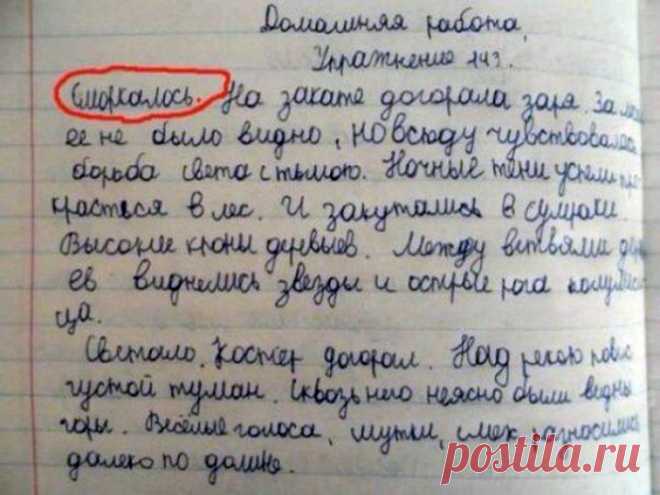 Домашняя работа
Упражнение 143.
Сморкалось. На закате догорала заря. За
ее не было видно, но всюду чувствовалась
борьба света с тьмою. Ночные тени успели про
красться в лес. И закутались в сумраки.
Высокие кроны деревьев. Между ветвями дер
ев виднелись звезды и острые рога полумеся
ца.
Светало. Костер догорал. Над рекою навис
густой туман. Сквозь него неясно были видны
горы. Весёлые голоса, шутки, смех
далеко по долине.
postila.ru